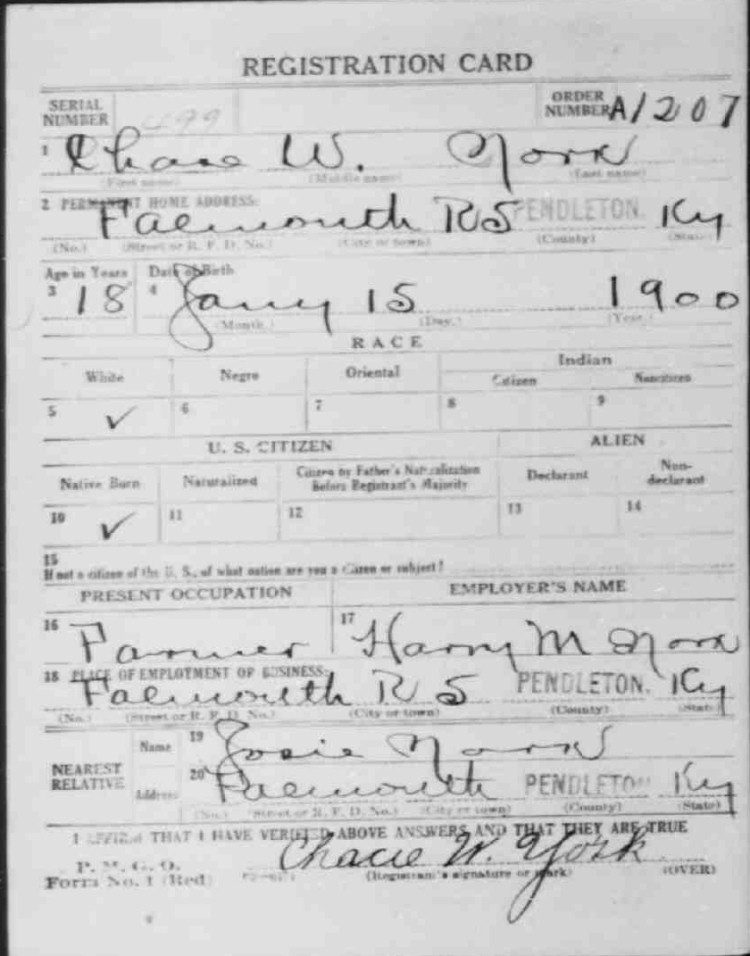 REGISTRATION CARD
SERIAL NUMBER 499 ORDER NUMBER A1207
1 Chase W. York
(First name) (Middle name) (Last name)
2 PERMANENT HOME ADDRESS:
Falmouth R5 PENDLETON. Ky
(No.) (Street or R. F. D. No.) (City or town) (County) (State)
Age in Years Date of Birth
3 18 4 Jany 15 1900
(Month.) (Day.) (Year.)
RACE
White Negro Oriental Indian
Citizen Noncitizen
5 ✓ 6 7 8 9
U. S. CITIZEN ALIEN
Native Born Naturalized Citizen by Father's Naturalization Before Registrant's Majority Declarant Non-declarant
10 ✓ 11 12 13 14
15
If not a citizen of the U. S., of what nation are you a citizen or subject?
PRESENT OCCUPATION EMPLOYER'S NAME
16 Farmer 17 Harry M York
18 PLACE OF EMPLOYMENT OR BUSINESS:
Falmouth R 5 PENDLETON. Ky
(No.) (Street or R. F. D. No.) (City or town) (County) (State)
NEAREST RELATIVE Name 19 Josie York
Address 20 Falmouth PENDLETON Ky
(No.) (Street or R. F. D. No.) (City or town) (County) (State)
I AFFIRM THAT I HAVE VERIFIED ABOVE ANSWERS AND THAT THEY ARE TRUE
P. M. G. O.
Form No. 1 (Red) Chacie W. York
(Registrant's signature or mark) (OVER)